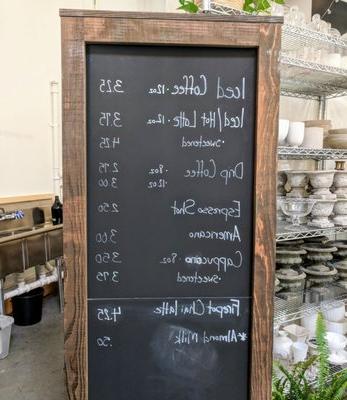 Iced Coffee · 12oz 3.25
Iced/Hot Latte · 12oz 3.75
· Sweetened 4.25
Drip Coffee · 8oz 2.75
· 12oz 3.00
Espresso Shot 2.50
Americano 3.00
Cappuccino 8oz 3.50
· Sweetened 3.75
Firepot Chai Latte 4.25
*Almond Milk .50